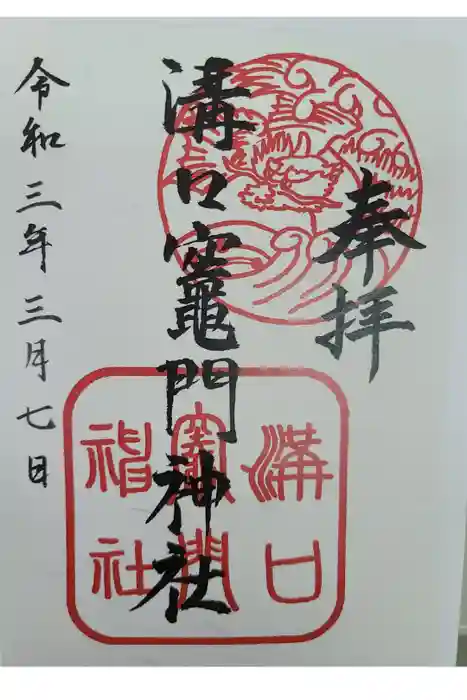 奉拝
溝口竈門神社
令和三年三月七日
溝口
竈門
神社